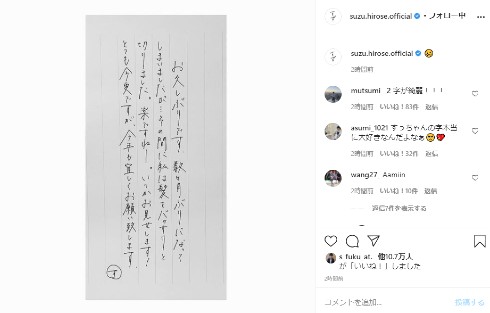 お久しぶりです。数ヶ月ぶりになって
しまいましたが…その間に私は髪をバッサリと
切りました。楽ですねー。いつかお見せします！
とても今更ですが、今年も宜しくお願い致します。
す
suzu.hirose.official • フォロー中
suzu.hirose.official
2時間前
mutsumi 2 字が綺麗！！！
2時間前 いいね！83件 返信
asumi_1021 すっちゃんの字本当
に大好きなんだよなぁ
2時間前 いいね！32件 返信
wang27 Aamiin
2時間前 いいね！10件 返信
返信7件を表示する
s_fuku_at、他10.7万人
が「いいね！」しました
2時間前
コメントを追加...
投稿する